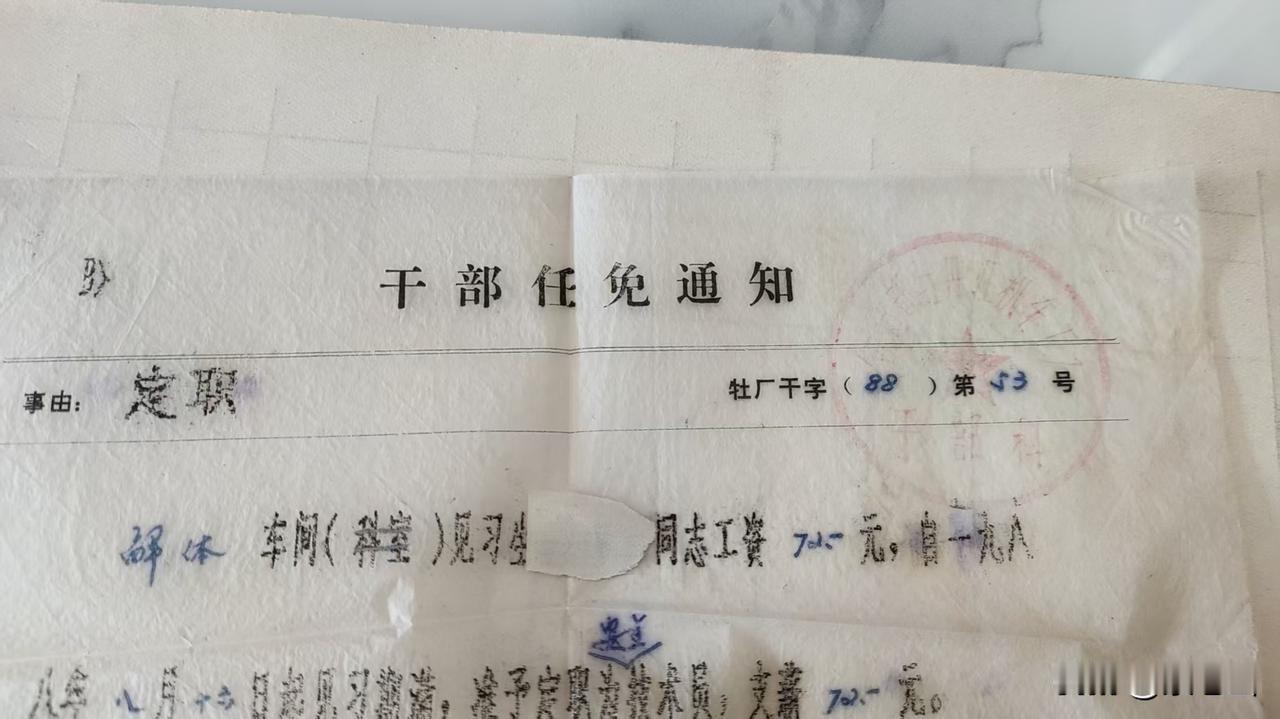 干部任免通知
事由： 定职 牡厂干字（ 88 ）第 53 号
解体 车间（科室）见习生 同志工资 70.5 元，自一九八
八年 八 月 十五 日起见习期满，准予定职为技术员，支薪 70.5 元。
干部科